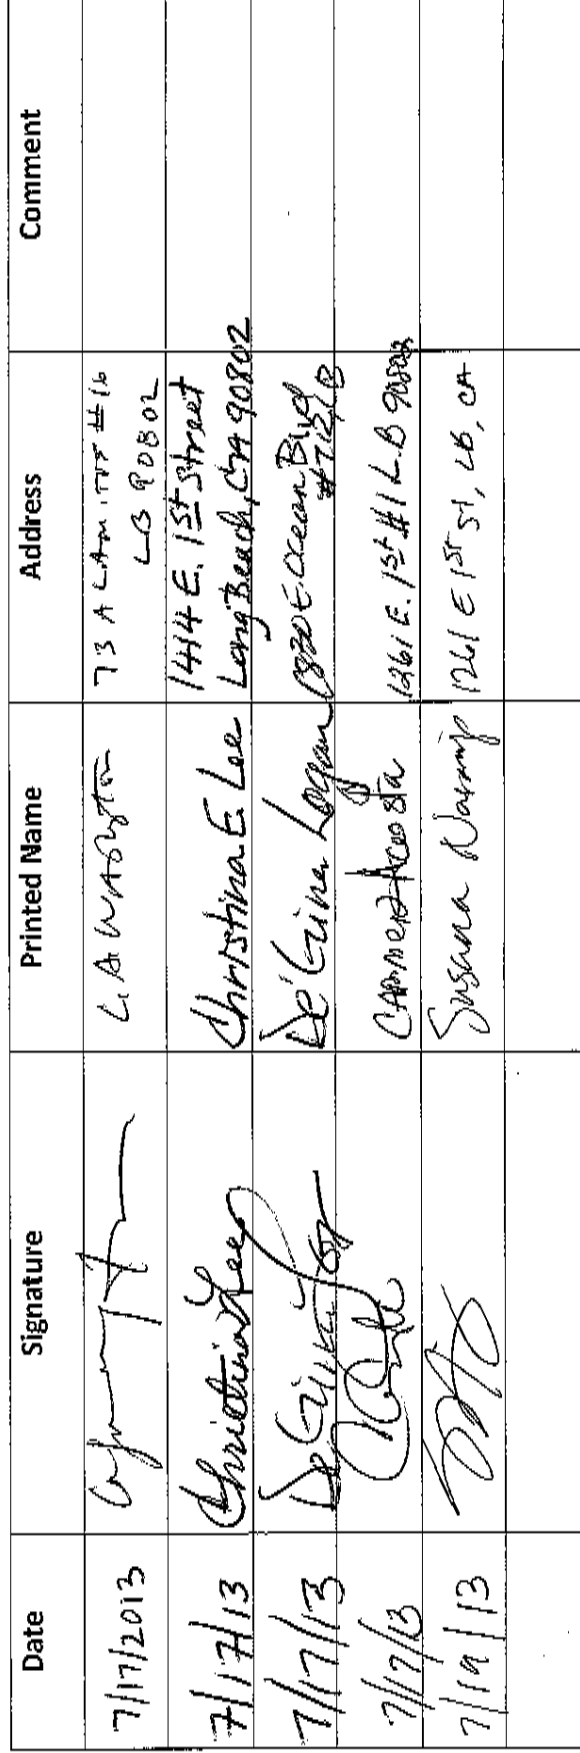 Date Signature Printed Name Address Comment
7/17/2013 L. A WAShgton 73 ALAmiTOS #16
LB 90802
7/17/13 Christina Lee Christina E. Lee 1414 E. 1st Street
Long Beach, CA 90802
7/17/13 De'Guina Logan E. Ocean Blvd
7/17/13 CARMEN Acosta 1261 E. 1st #1 L.B 90802
7/19/13 Susana 1261 E 1st St, LB, CA